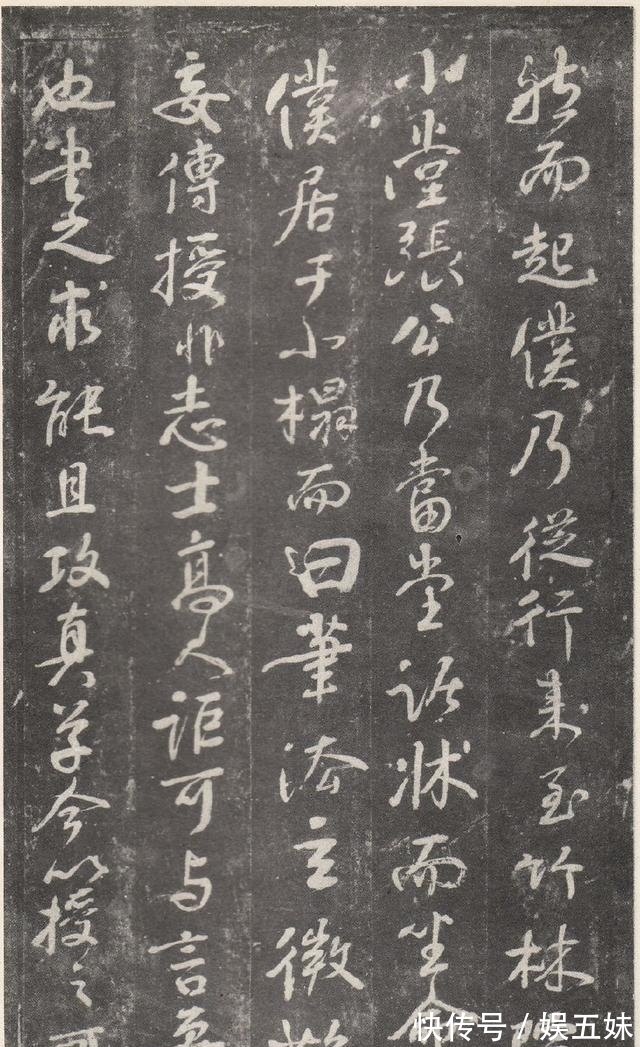 然而起僕乃從行来至竹林
小堂張公乃當堂踞牀而坐命
僕居于小榻而曰筆法玄微難
妄傳授非志士高人詎可与言要
也書之求能且攻真草今以授之可
快传号/娱五妹